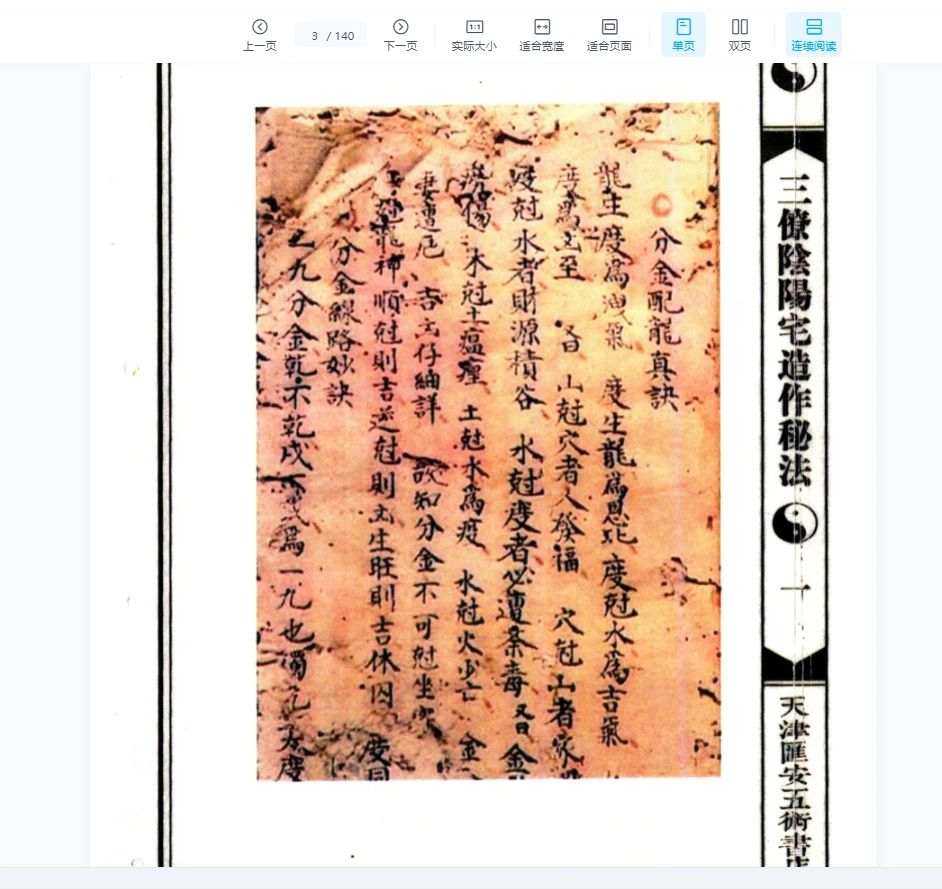 上一页
3 / 140
下一页
1:1
实际大小
适合宽度
适合页面
单页
双页
连续阅读
三僚陰陽宅造作秘法
一
天津匯安五術書店
分金配龍真訣
龍生度為洩氣 度生龍為恩 度尅水為吉氣
至 又曰 山尅穴者人發福 穴尅山者家
尅水者財源積谷 水尅度者必遭 毒 又曰 金
傷 木尅土瘟瘟 土尅水為疫 水尅火少亡 金
妻遭厄 吉凶仔細詳 欲知分金不可尅坐穴
龍神順尅則吉逆尅則凶生旺則吉休囚 度同
分金線路妙訣
九分金乾不乾戌不戌為一九也 度